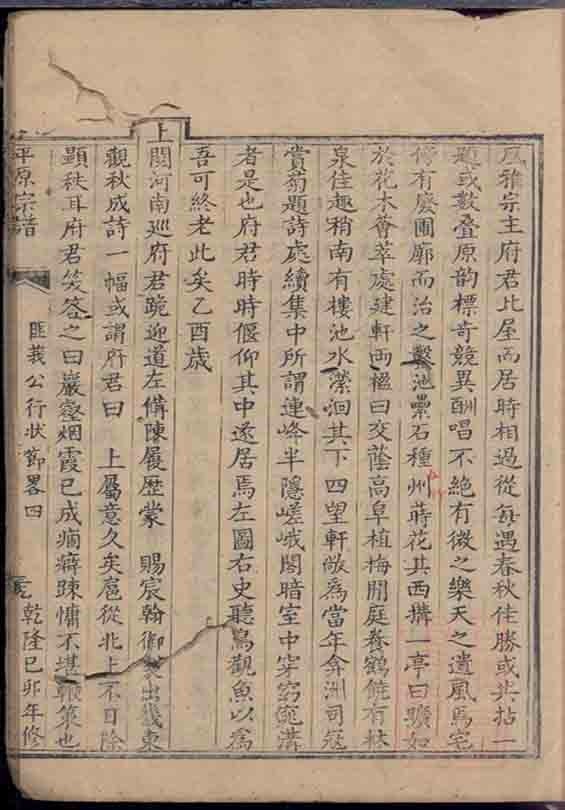 風雅宗主府君比屋而居時相過從每遇春秋佳勝或共拈一
題或數叠原韵標奇競異酬唱不絕有微之樂天之遺風焉宅
傍有廢圃廓而治之鑿池壘石種竹蒔花其西搆一亭曰曠如
於花木薈萃處建軒兩楹曰交蔭高阜植梅閒庭養鶴饒有林
泉佳趣稍南有樓池水瀠洄其下四望軒敞為當年弇洲司寇
賞菊題詩處續集中所謂連峰半隱嵯峨閣暗室中穿窈窕溝
者是也府君時時偃仰其中遂居焉左圖右史聽鳥觀魚以為
吾可終老此矣乙酉歲
上閱河南巡府君跪迎道左備陳履歷蒙 賜宸翰御製出畿東
觀秋成詩一幅或謂府君曰 上屬意久矣扈從北上不日除
顯秩耳府君笑答之曰巖壑烟霞已成痼癖踈慵不堪鞭策也
平原宗譜
匪莪公行狀節畧四
乾隆己卯年修